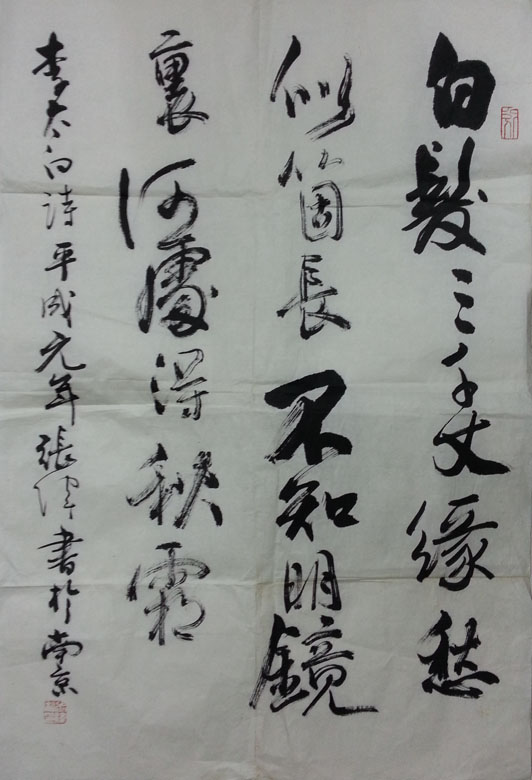 白髮三千丈緣愁
似箇長不知明鏡
裏何處得秋霜
李太白詩平成元年張澤書於南京